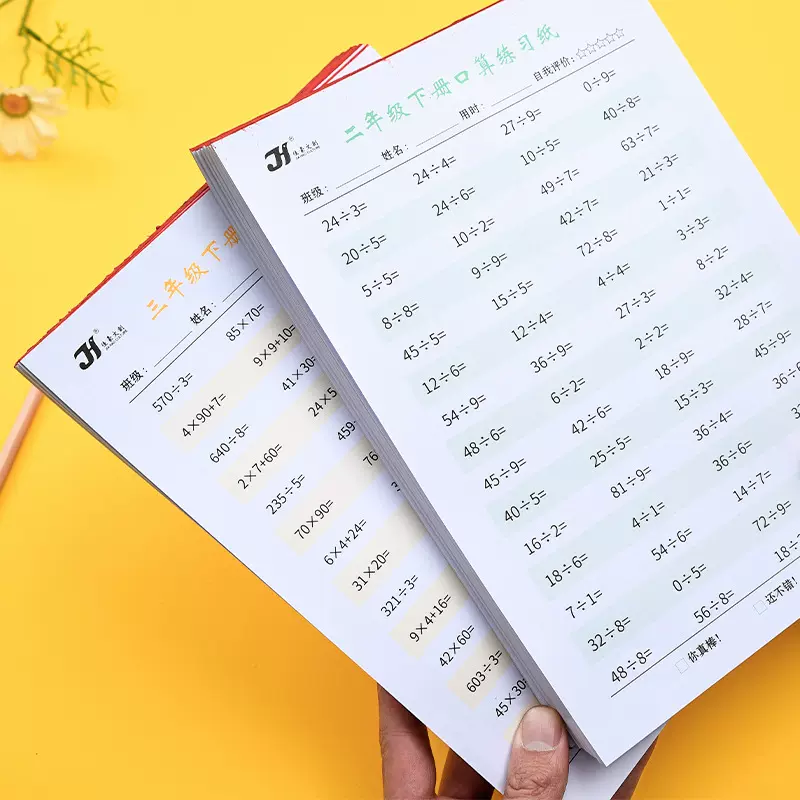 二年级下册口算练习纸
JH®
班级： 姓名： 用时： 自我评价：☆☆☆☆☆
24÷3= 24÷4= 27÷9= 0÷9=
20÷5= 24÷6= 10÷5= 40÷8=
5÷5= 10÷2= 49÷7= 63÷7=
8÷8= 9÷9= 42÷7= 21÷3=
45÷5= 15÷5= 72÷8= 1÷1=
12÷6= 12÷4= 4÷4= 3÷3=
54÷9= 36÷9= 27÷3= 8÷2=
48÷6= 6÷2= 2÷2= 32÷4=
45÷9= 42÷6= 18÷9= 28÷7=
40÷5= 25÷5= 15÷3= 45÷9=
16÷2= 81÷9= 36÷4= 36÷
18÷6= 4÷1= 36÷6=
7÷1= 54÷6= 14÷7=
32÷8= 0÷5= 72÷9=
48÷8= 56÷8= 18÷
□你真棒！ □还不错！
三年级下册
JH®
班级： 姓名：
570÷3= 85×70=
4×90+7= 9×9+10=
640÷8= 41×30=
2×7+60= 24×5
235÷5= 459
70×90= 76
6×4+24=
31×20=
321÷3=
9×4+16=
42×60=
603÷3=
45×30=